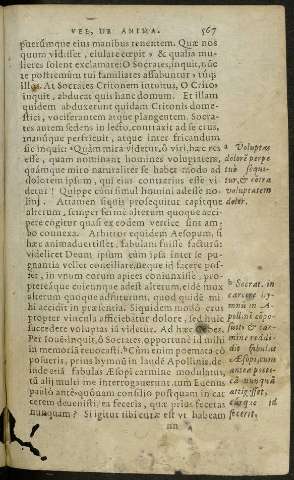 VEL, DE ANIMA. 567
puerumque eius manibus tenentem. Quæ nos
quom vidisset, eiulare cœpit, & qualia mu-
lieres solent exclamare: O Socrates, inquit, nūc
te postremùm tui familiares affabuntur, túq;
illos. At Socrates Critonem intuitus, O Crito,
inquit, abducat quis hanc domum. Et illam
quidem abduxerunt quidam Critonis dome-
stici, vociferantem atque plangentem. Socra-
tes autem sedens in lecto, contraxit ad se crus,
manúsque perfricuit, atque inter fricandum
sic inquit: ᵃ Quàm mira videtur, ô viri, hæc res
esse, quam nominant homines voluptatem,
quámque miro naturaliter se habet modo ad
dolorem ipsum, qui eius contrarius esse vi-
detur! Quippe cùm simul homini adesse no-
lint. Attamen siquis prosequitur capitque
alterum, semper fermè alterum quoque acci-
pere cogitur quasi ex eodem vertice sint am-
bo connexa. Arbitror equidem Æsopum, si
hæc animaduertisset, fabulam fuisse facturū:
videlicet Deum ipsum cùm ipsa inter se pu-
gnantia vellet conciliare, neque id facere pos-
set, in vnum eorum apices coniunxisse: pro-
ptereáque cuicunque adest alterum, eidē mox
alterum quoque adfuturum, quod quidē mi-
hi accidit in præsentia. Siquidem modò crus
propter vincula afficiebatur dolore, sed huic
succedere voluptas iā videtur. Ad hæc Cebes,
Per Iouē inquit, ô Socrates, opportunè id mihi
in memoriā reuocasti. ᵇ Cùm enim poemata cō
posueris, prius hymnū in laudē Apollinis, de-
inde etiā fabulas Æsopi carmine modulatus,
tū alij multi me interrogauerunt, tum Euenus
paulò ante: quónam consilio posquam in car
cerem deuenisti, ea feceris, quæ prius fecetas
nunquam? Si igitur tibi curæ est vt habeam
nn
a Voluptas
dolorē perpe
tuò sequi-
tur, & cōtra
voluptatem
dolor.
b Socrat. in
carcere hy-
mnū in A-
poll. cō cōpo-
suit & car-
mine reddi-
dit fabulas
Æsopi, cùm
antea poeti-
cā nunquā
attigisset,
cúrque id
fecerit.